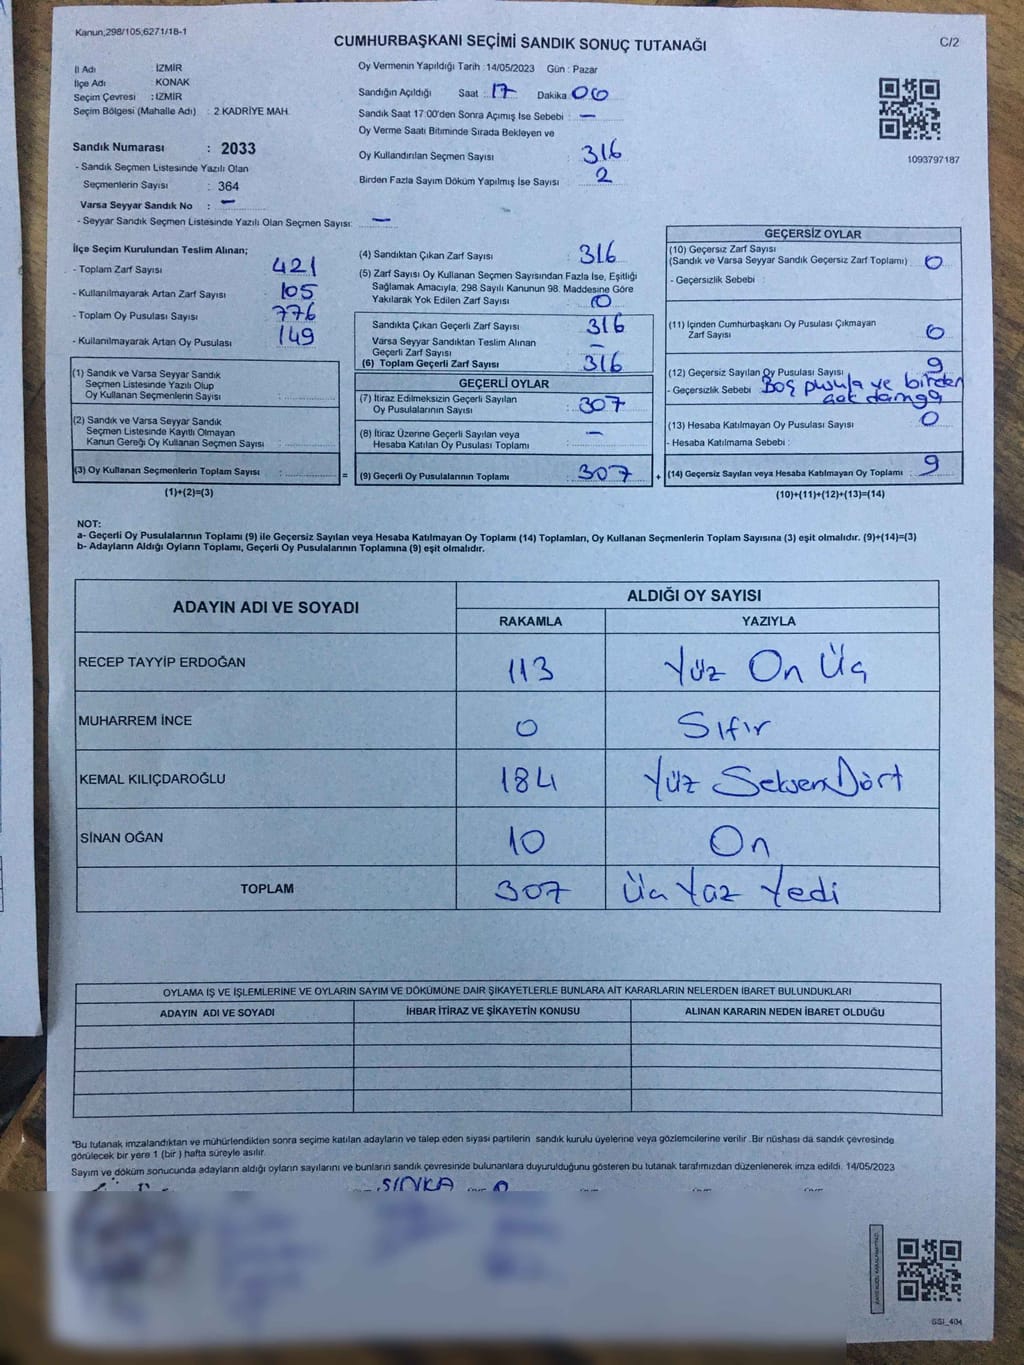 Kanun;298/105;6271/18-1
CUMHURBAŞKANI SEÇİMİ SANDIK SONUÇ TUTANAĞI
C/2
İl Adı İZMİR
İlçe Adı KONAK
Seçim Çevresi : İZMİR
Seçim Bölgesi (Mahalle Adı) : 2 KADRİYE MAH.
Oy Vermenin Yapıldığı Tarih : 14/05/2023 Gün : Pazar
Sandığın Açıldığı Saat : 17 Dakika 00
Sandık Saat 17:00'den Sonra Açımış İse Sebebi : —
Oy Verme Saati Bitiminde Sırada Bekleyen ve
Oy Kullandırılan Seçmen Sayısı : 316
Birden Fazla Sayım Döküm Yapılmış İse Sayısı : 2
1093797187
Sandık Numarası : 2033
- Sandık Seçmen Listesinde Yazılı Olan
Seçmenlerin Sayısı : 364
Varsa Seyyar Sandık No : —
- Seyyar Sandık Seçmen Listesinde Yazılı Olan Seçmen Sayısı: —
İlçe Seçim Kurulundan Teslim Alınan;
- Toplam Zarf Sayısı 421
- Kullanılmayarak Artan Zarf Sayısı 105
- Toplam Oy Pusulası Sayısı 776
- Kullanılmayarak Artan Oy Pusulası 149
(1) Sandık ve Varsa Seyyar Sandık
Seçmen Listesinde Yazılı Olup
Oy Kullanan Seçmenlerin Sayısı :
(2) Sandık ve Varsa Seyyar Sandık
Seçmen Listesinde Kayıtlı Olmayan
Kanun Gereği Oy Kullanan Seçmen Sayısı :
(3) Oy Kullanan Seçmenlerin Toplam Sayısı : =
(1)+(2)=(3)
(4) Sandıktan Çıkan Zarf Sayısı : 316
(5) Zarf Sayısı Oy Kullanan Seçmen Sayısından Fazla İse, Eşitliği
Sağlamak Amacıyla, 298 Sayılı Kanunun 98. Maddesine Göre
Yakılarak Yok Edilen Zarf Sayısı :
Sandıkta Çıkan Geçerli Zarf Sayısı : 316
Varsa Seyyar Sandıktan Teslim Alınan
Geçerli Zarf Sayısı : —
(6) Toplam Geçerli Zarf Sayısı : 316
GEÇERLİ OYLAR
(7) İtiraz Edilmeksizin Geçerli Sayılan
Oy Pusulalarının Sayısı : 307
(8) İtiraz Üzerine Geçerli Sayılan veya
Hesaba Katılan Oy Pusulası Toplamı : —
(9) Geçerli Oy Pusulalarının Toplamı : 307 +
GEÇERSİZ OYLAR
(10) Geçersiz Zarf Sayısı
(Sandık ve Varsa Seyyar Sandık Geçersiz Zarf Toplamı) : 0
- Geçersizlik Sebebi :
(11) İçinden Cumhurbaşkanı Oy Pusulası Çıkmayan
Zarf Sayısı : 0
(12) Geçersiz Sayılan Oy Pusulası Sayısı : 9
- Geçersizlik Sebebi : Boş pusula ve birden
çok damga
(13) Hesaba Katılmayan Oy Pusulası Sayısı : 0
- Hesaba Katılmama Sebebi :
(14) Geçersiz Sayılan veya Hesaba Katılmayan Oy Toplamı : 9
(10)+(11)+(12)+(13)=(14)
NOT:
a- Geçerli Oy Pusulalarının Toplamı (9) ile Geçersiz Sayılan veya Hesaba Katılmayan Oy Toplamı (14) Toplamları, Oy Kullanan Seçmenlerin Toplam Sayısına (3) eşit olmalıdır. (9)+(14)=(3)
b- Adayların Aldığı Oyların Toplamı, Geçerli Oy Pusulalarının Toplamına (9) eşit olmalıdır.
ADAYIN ADI VE SOYADI ALDIĞI OY SAYISI
RAKAMLA YAZIYLA
RECEP TAYYİP ERDOĞAN 113 Yüz On Üç
MUHARREM İNCE 0 Sıfır
KEMAL KILIÇDAROĞLU 184 Yüz Seksen Dört
SİNAN OĞAN 10 On
TOPLAM 307 Üç Yüz Yedi
OYLAMA İŞ VE İŞLEMLERİNE VE OYLARIN SAYIM VE DÖKÜMÜNE DAİR ŞİKAYETLERLE BUNLARA AİT KARARLARIN NELERDEN İBARET BULUNDUKLARI
ADAYIN ADI VE SOYADI İHBAR İTİRAZ VE ŞİKAYETİN KONUSU ALINAN KARARIN NEDEN İBARET OLDUĞU
*Bu tutanak imzalandıktan ve mühürlendikten sonra seçime katılan adayların ve talep eden siyasi partilerin sandık kurulu üyelerine veya gözlemcilerine verilir. Bir nüshası da sandık çevresinde
görülecek bir yere 1 (bir ) hafta süreyle asılır.
Sayım ve döküm sonucunda adayların aldığı oyların sayılarını ve bunların sandık çevresinde bulunanlara duyurulduğunu gösteren bu tutanak tarafımızdan düzenlenerek imza edildi. 14/05/2023
SSI_404